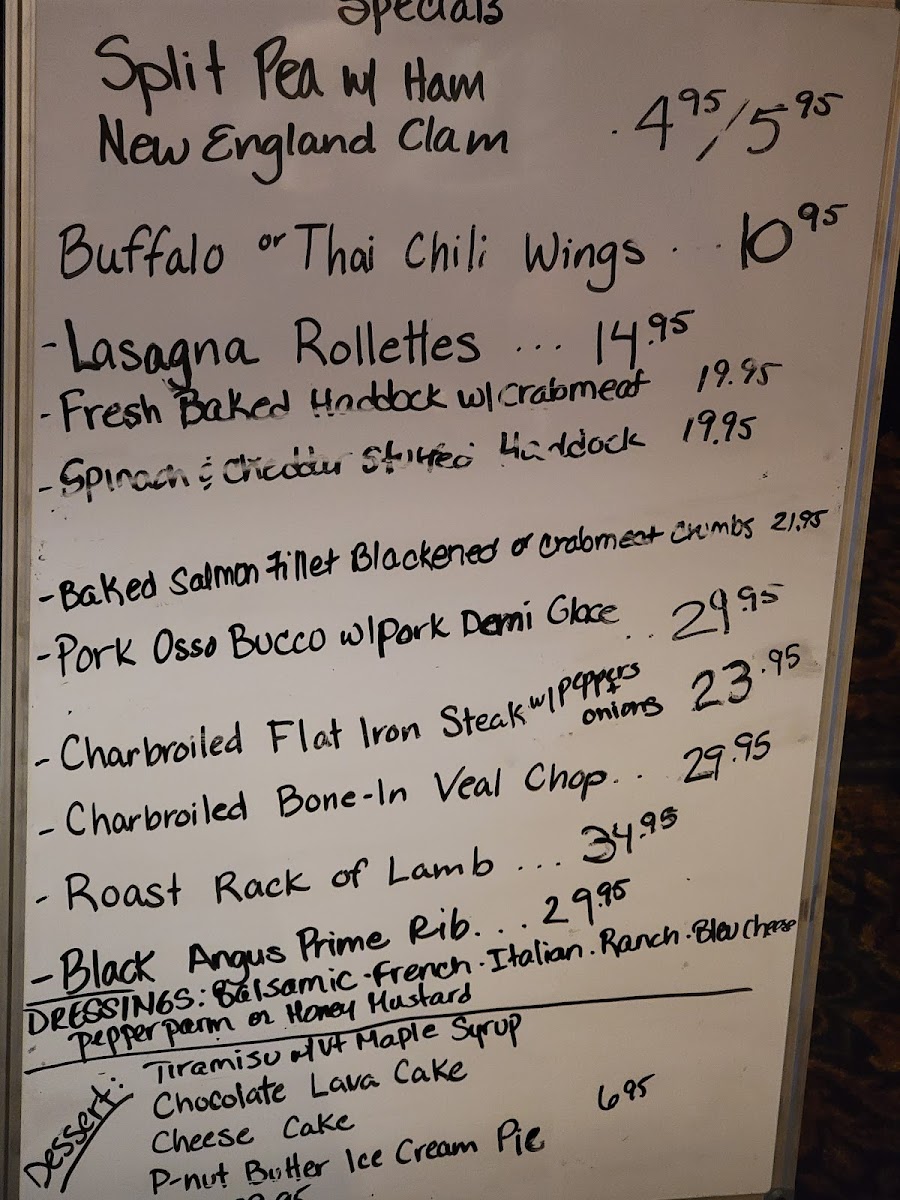 Specials
Split Pea w/ Ham
New England Clam . 4 95 / 5 95
Buffalo or Thai Chili Wings ... 10 95
- Lasagna Rollettes ... 14.95
- Fresh Baked Haddock w/ Crabmeat 19.95
- Spinach & Cheddar Stuffed Haddock 19.95
- Baked Salmon Fillet Blackened or Crabmeat Crumbs 21.95
- Pork Osso Bucco w/ Pork Demi Glace .. 29.95
- Charbroiled Flat Iron Steak w/ Peppers + onions 23.95
- Charbroiled Bone-In Veal Chop... 29.95
- Roast Rack of Lamb ... 34.95
- Black Angus Prime Rib... 29.95
DRESSINGS: Balsamic · French · Italian · Ranch · Bleu Cheese
Pepper parm or Honey Mustard
Dessert: Tiramisu w/ Vt Maple Syrup
Chocolate Lava Cake
Cheese Cake 6 95
P-nut Butter Ice Cream Pie